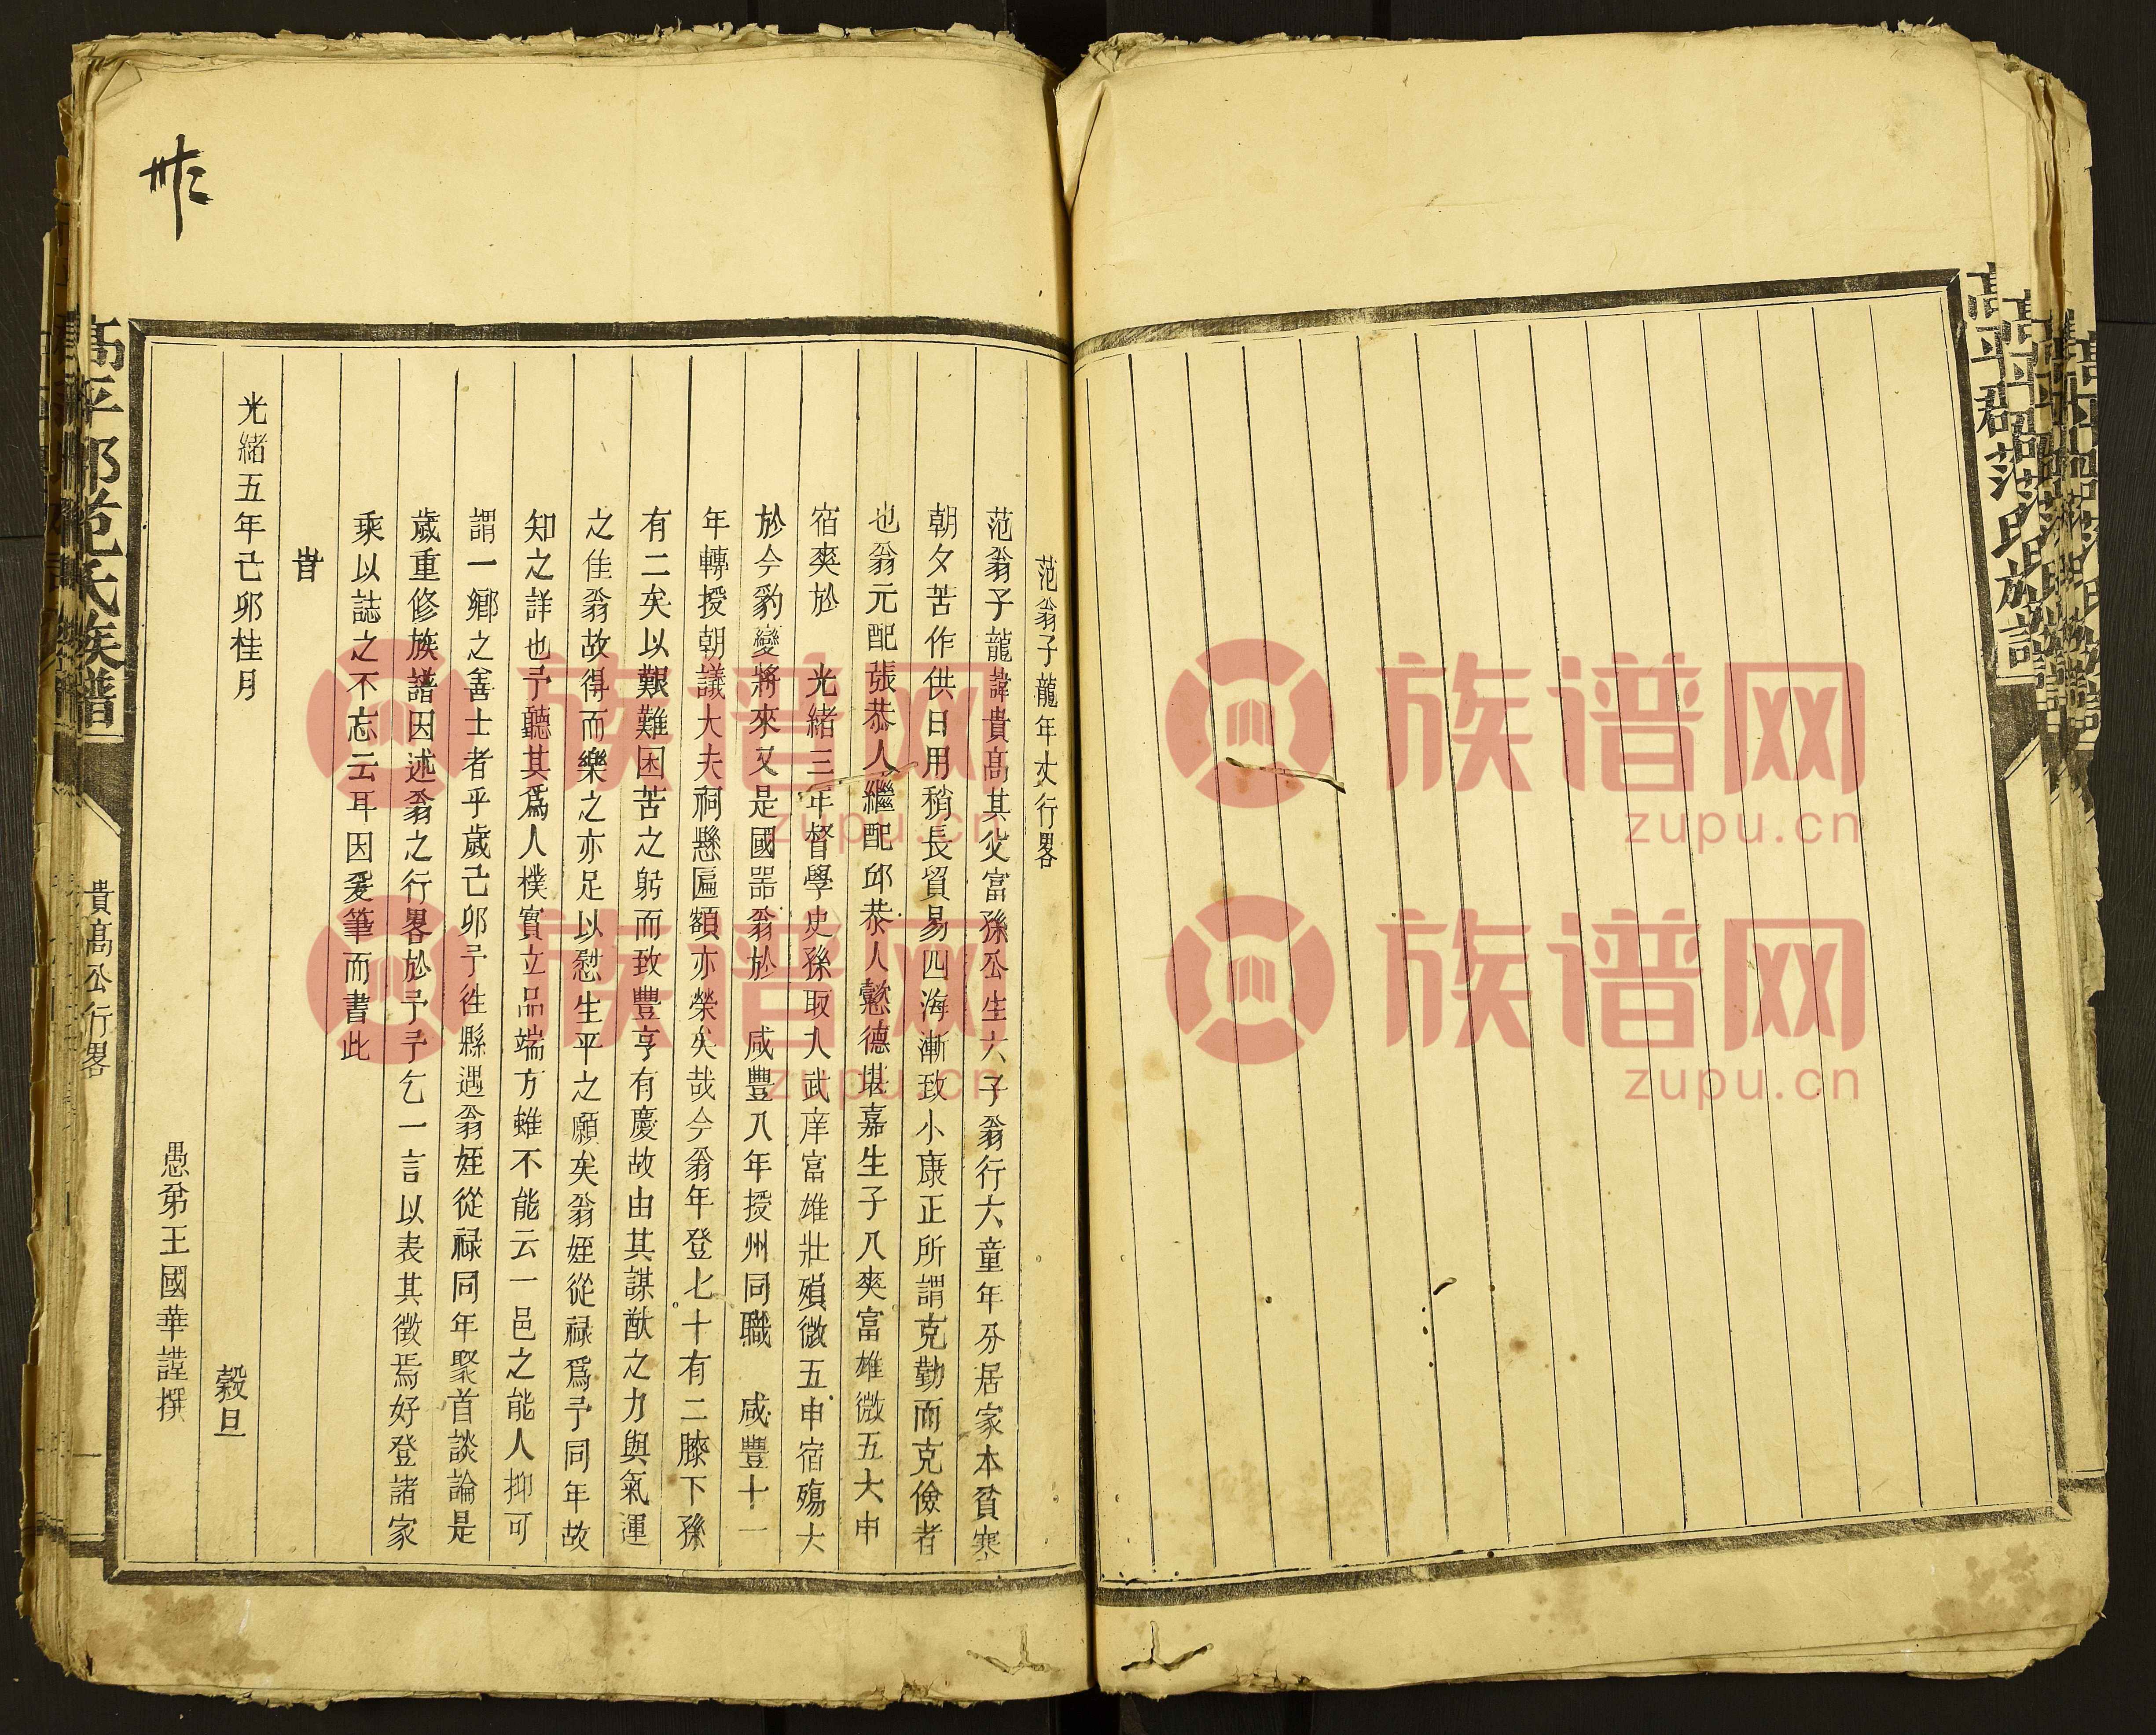 高平郡范氏族譜
范翁子龍年丈行畧
范翁子龍諱貴高其父富孫公生六子翁行六童年分居家本貧寒
朝夕苦作供日用稍長貿易四海漸致小康正所謂克勤而克儉者
也翁元配張恭人繼配邱恭人懿德堪嘉生子八奕富雄微五大申
宿奕於　光緒三年督學史孫取入武庠富雄壯殞微五申宿殤大
於今豹變將來又是國器翁於　咸豐八年授州同職　咸豐十一
年轉授朝議大夫祠懸匾額亦榮矣哉今翁年登七十有二膝下孫
有二矣以艱難困苦之躬而致豐亨有慶故由其謀猷之力與氣運
之佳翁故得而樂之亦足以慰生平之願矣翁姪從祿爲予同年故
知之詳也予聽其爲人樸實立品端方雖不能云一邑之能人抑可
謂一鄉之善士者乎歲己卯予徃縣遇翁姪從祿同年聚首談論是
歲重修族譜因述翁之行畧於予予乞一言以表其徵焉好登諸家
乘以誌之不忘云耳因爰筆而書此
旹
光緒五年己卯桂月　穀旦
愚弟王國華謹撰
高平郡范氏族譜
貴高公行畧
一
族谱网
zupu.cn
族谱网
zupu.cn
族谱网
zupu.cn
族谱网
zupu.cn